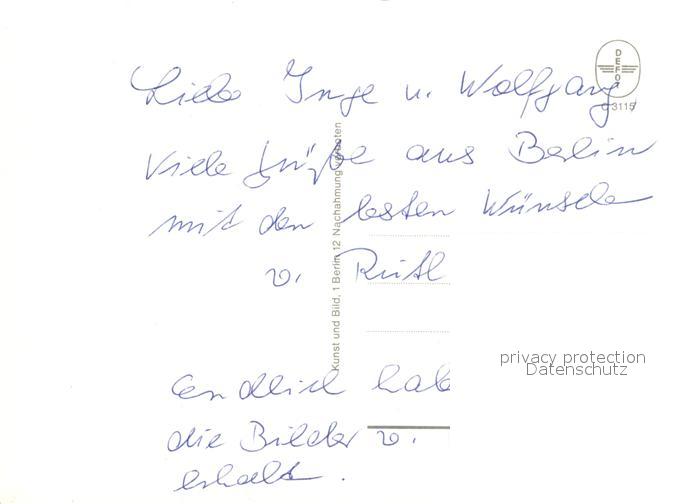 Liebe Inge u. Wolfgang
Viele Grüße aus Berlin
mit den besten Wünsche
v. Ruth
Endlich habe
die Bilder v.
erhalte.
DEFOT
C 3115
Kunst und Bild, 1 Berlin 12 Nachahmung verboten
privacy protection
Datenschutz